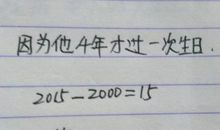 因为他4年才过一次生日.
2015-2000=15